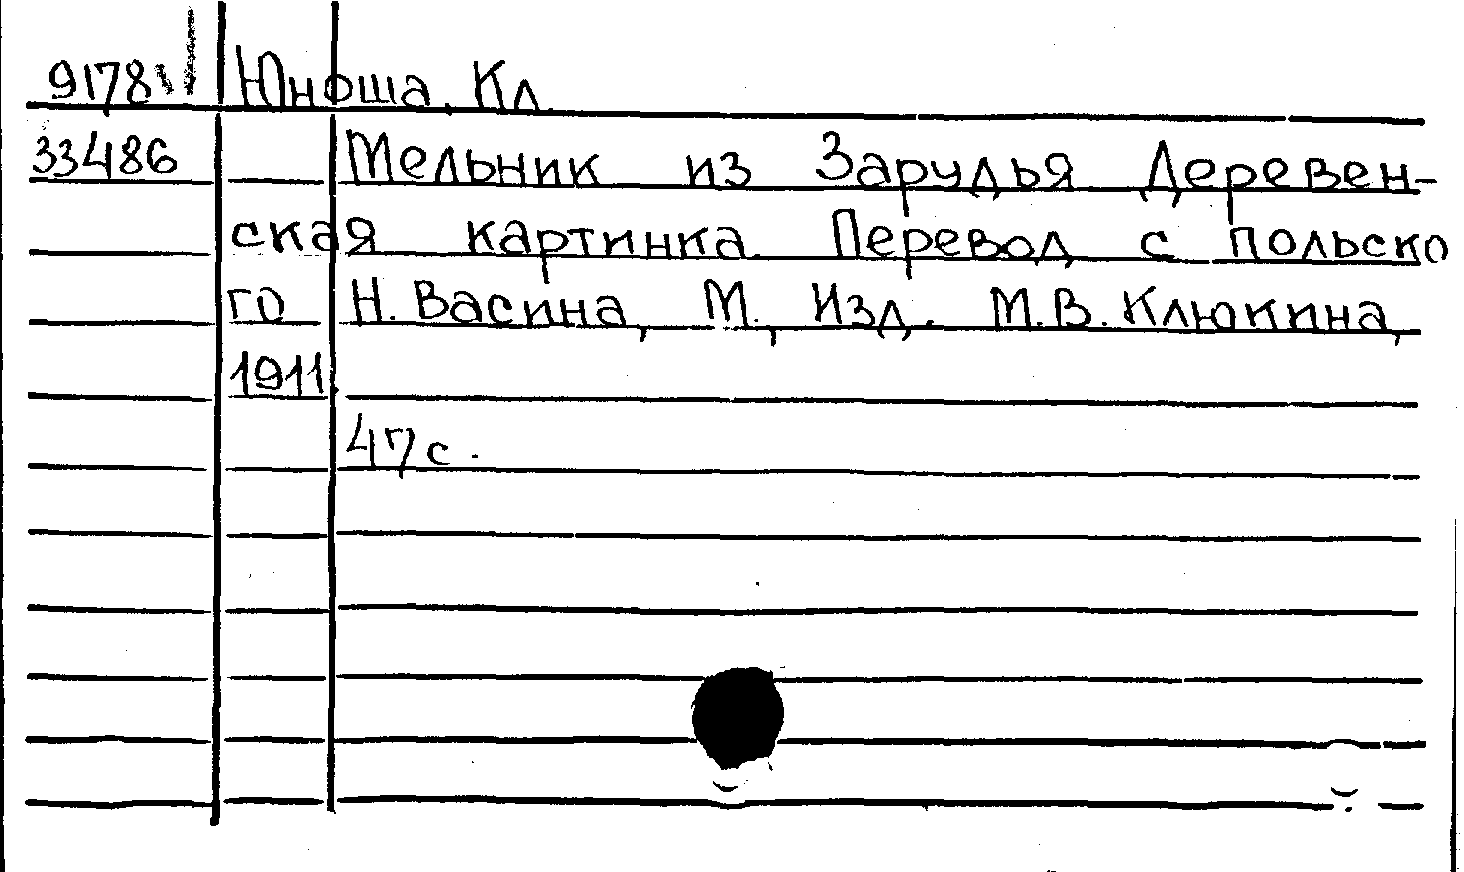 9178 Юноша, Кл.
33486 Мельник из Зарудья Деревен-
ская картинка. Перевод с польско
го Н. Васина, М., Изд. М.В. Клюкина,
1911.
47 с.